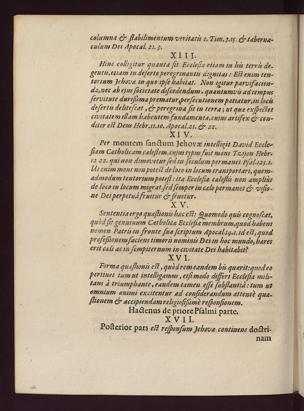 columna & stabilimentum veritatis 1. Tim. 3.15. & taberna-
culum Dei Apocal. 21. 3.
XIII.
Hinc colligitur quanta sit Ecclesia etiam in his terris de-
gentis, etiam in deserto peregrinantis dignitas: Est enim ten-
torium Jehova in quo ipse habitat. Non igitur parvifacien-
da, nec ab ejus societate discedendum, quantumvis ad tempus
servitute durissima prematur, persecutionem patiatur, in locis
desertis delitescat, & peregrina sit in terra; ut qua exspectet
civitatem illam habentem fundamenta, cujus artifex & con-
ditor est Deus Hebr. 11.10. Apocal. 21. & 22.
XIV.
Per montem sanctum Jehovæ intelligit David Eccle-
siam Catholicam cælestem, cujus typus fuit mons Tzijon Hebr.
12. 22. qui non dimovetur sed in seculum permanet Psal. 125. 1.
Ut enim mons non potest de loco in locum transportari, quem-
admodum tentorium potest: ita Ecclesia cælestis non amplius
de loco in locum migrat, sed semper in cælo permanet & visio-
ne Dei perpetuâ fruitur & fruetur.
XV.
Sententia ergo quæstionis hæc est: Quomodo quis cognoscat,
quòd sit genuinum Catholicæ Ecclesiæ membrum, quod habens
nomen Patris in fronte suâ scriptum Apocal. 14.1. id est, quod
professionem faciens timoris nominis Dei in hoc mundo, hæres
erit cæli ac in sempiternum in civitate Dei habitabit?
XVI.
Forma quæstionis est, quòd rem eandem bis quærit: quod eo
pertinet tum ut intelligamus, etsi modo differt Ecclesia mili-
tans à triumphante, eandem tamen esse substantiâ: tum ut
omnium animi excitentur ad considerandum attentè quæ-
stionem & accipiendam religiosissimè responsionem.
Hactenus de priore Psalmi parte.
XVII.
Posterior pars est responsum Jehovæ continens doctri-
nam